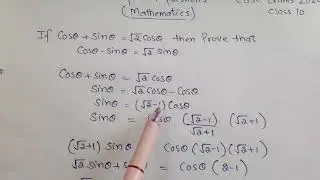 (Mathematics)
Class 10
If Cosθ + Sinθ = √2 Cosθ then Prove that
Cosθ - Sinθ = √2 Sinθ
Cosθ + Sinθ = √2 Cosθ
Sinθ = √2 Cosθ - Cosθ
Sinθ = (√2-1) Cosθ
Sinθ = θ (√2-1) (√2+1)
√2+1
(√2+1) Sinθ = Cosθ (√2-1)(√2+1)
√2 Sinθ + S = Cosθ (2-1)